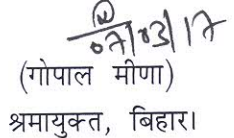 07/03/17
(गोपाल मीणा)
श्रमायुक्त, बिहार।